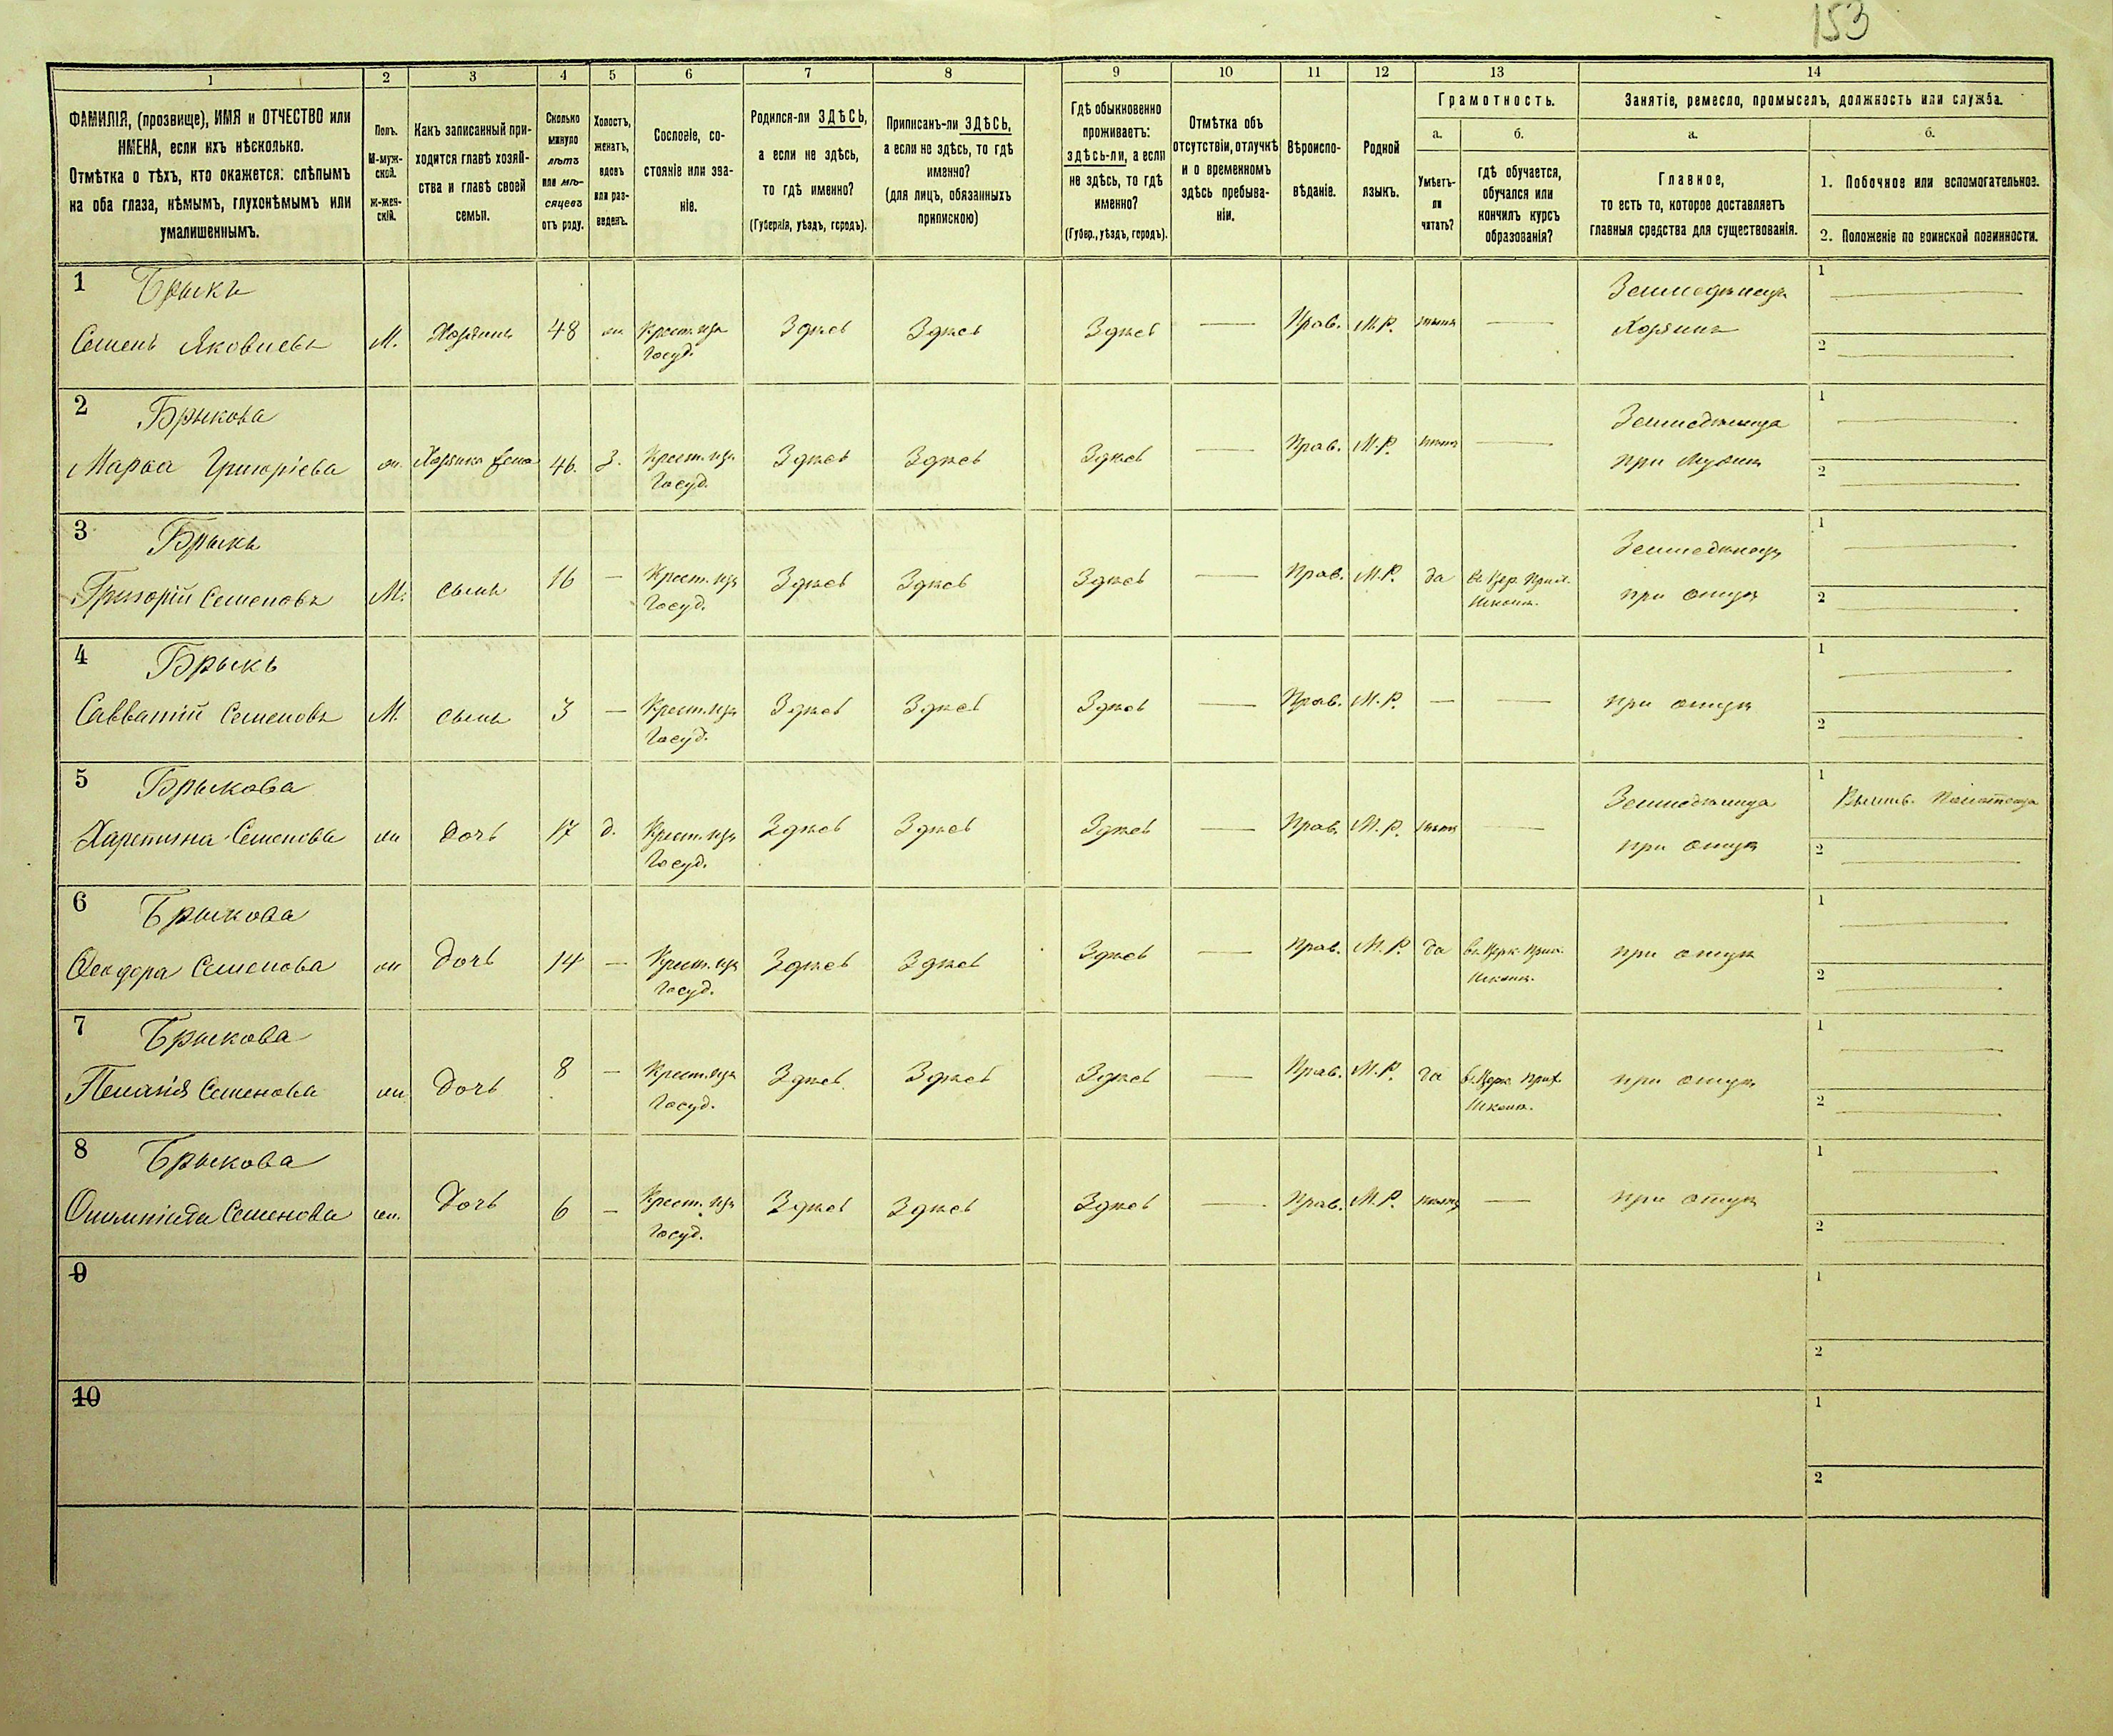 153
1 2 3 4 5 6 7 8 9 10 11 12 13 14
ФАМИЛІЯ, (прозвище), ИМЯ и ОТЧЕСТВО или
ИМЕНА, если ихъ нѣсколько.
Отмѣтка о тѣхъ, кто окажется: слѣпымъ
на оба глаза, нѣмымъ, глухонѣмымъ или
умалишеннымъ.
Полъ.
М-муж-
ской.
Ж-жен-
скій.
Какъ записанный при-
ходится главѣ хозяй-
ства и главѣ своей
семьи.
Сколько
минуло
лѣтъ
или мѣ-
сяцевъ
отъ роду.
Холостъ,
женатъ,
вдовъ
или раз-
веденъ.
Сословіе, со-
стояніе или зва-
ніе.
Родился-ли ЗДѢСЬ,
а если не здѣсь,
то гдѣ именно?
(Губернія, уѣздъ, городъ).
Приписанъ-ли ЗДѢСЬ,
а если не здѣсь, то гдѣ
именно?
(для лицъ, обязанныхъ
припискою)
Гдѣ обыкновенно
проживаетъ:
здѣсь-ли, а если
не здѣсь, то гдѣ
именно?
(Губер., уѣздъ, городъ).
Отмѣтка объ
отсутствіи, отлучкѣ
и о временномъ
здѣсь пребыва-
ніи.
Вѣроиспо-
вѣданіе.
Родной
языкъ.
Грамотность.
а. б.
Умѣетъ-
ли
читать?
гдѣ обучается,
обучался или
кончилъ курсъ
образованія?
Занятіе, ремесло, промыселъ, должность или служба.
а. б.
Главное,
то есть то, которое доставляетъ
главныя средства для существованія.
1. Побочное или вспомогательное.
2. Положеніе по воинской повинности.
1 Брыкъ Земледѣлецъ 1
Семенъ Яковлевъ М. Хозяинъ 48 ж Крест. изъ Здѣсь Здѣсь Здѣсь — Прав. М.Р. нѣтъ — Хозяинъ
Госуд. 2
2 Брыкова Земледѣлица 1
Марѳа Григоріева ж. Хозяина жена 46. З. Крест. изъ Здѣсь Здѣсь Здѣсь — Прав. М.Р. нѣтъ — при мужѣ
Госуд. 2
3 Брыкъ Земледѣлецъ 1
Григорій Семеновъ М. сынъ 16 — Крест. изъ Здѣсь Здѣсь Здѣсь — Прав. М.Р. да въ Цер. Прих. при отцѣ
Госуд. Школѣ. 2
4 Брыкъ 1
Савватій Семеновъ М. сынъ 3 — Крест. изъ Здѣсь Здѣсь Здѣсь — Прав. М.Р. — — при отцѣ
Госуд. 2
5 Брыкова Земледѣлица 1
Харитина Семенова ж дочь 17 д. Крест. изъ Здѣсь Здѣсь Здѣсь — Прав. М.Р. нѣтъ — при отцѣ
Госуд. 2
6 Брыкова 1
Ѳеодора Семенова ж дочь 14 — Крест. изъ Здѣсь Здѣсь Здѣсь — Прав. М.Р. да въ Церк. Прих. при отцѣ
Госуд. Школѣ. 2
7 Брыкова 1
Пелагія Семенова ж дочь 8 — Крест. изъ Здѣсь Здѣсь Здѣсь — Прав. М.Р. да въ Церк. Прих. при отцѣ
Госуд. Школѣ. 2
8 Брыкова 1
Олимпіада Семенова ж. дочь 6 — Крест. изъ Здѣсь Здѣсь Здѣсь — Прав. М.Р. нѣтъ — при отцѣ
Госуд. 2
9 1
2
10 1
2